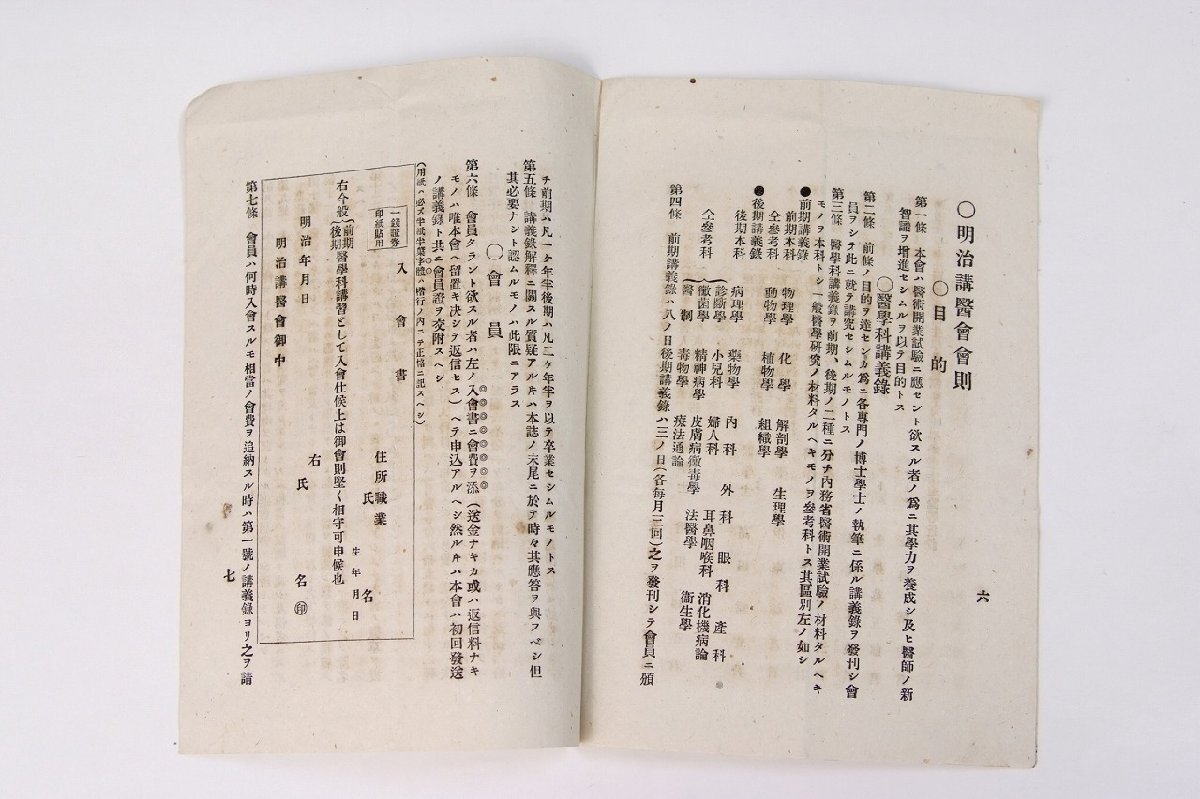 〇明治講醫會會則
〇目的
第一條 本會ハ醫術開業試驗ニ應セント欲スル者ノ爲ニ其學力ヲ養成シ及ヒ醫師ノ新
智識ヲ增進セシムルヲ以テ目的トス
〇醫學科講義錄
第二條 前條ノ目的ヲ達センカ爲ニ各專門ノ博士學士ノ執筆ニ係ル講義錄ヲ發刊シ會
員ヲシテ此ニ就テ講究セシムルモノトス
第三條 醫學科講義錄ヲ前期、後期ノ二種ニ分チ內務省醫術開業試驗ノ材料タルヘキ
モノヲ本科トシ一般醫學硏究ノ材料タルヘキモノヲ參考科トス其區別左ノ如シ
●前期講義錄
前期本科 物理學 化學 解剖學 生理學
仝參考科 動物學 植物學 組織學
●後期講義錄
後期本科 病理學 藥物學 內科 外科 眼科 產科
仝參考科 診斷學 小兒科 婦人科 耳鼻咽喉科 消化機病論
黴菌學 精神病學 皮膚病黴毒學 法醫學 衞生學
醫制 毒物學 療法通論
第四條 前期講義錄ハ八ノ日後期講義錄ハ三ノ日(各每月三回)之ヲ發刊シテ會員ニ頒
六
チ前期ハ凡一ケ年半後期ハ凡二ケ年半ヲ以テ卒業セシムルモノトス
第五條 講義錄解釋ニ關スル質疑アルキハ本誌ノ末尾ニ於テ時々其應答ヲ與フベシ但
其必要ナシト認ムルモノハ此限ニアラス
〇會員
第六條 會員タラント欲スル者ハ左ノ入會書ニ會費ヲ添(送金ナキカ或ハ返信料ナキ
モノハ唯本會ヘ留置キ決シテ返信セス)ヘテ申込アルヘシ然ルキハ本會ハ初回發送
ノ講義錄ト共ニ會員證ヲ交附スヘシ
(用紙ハ必ズ半紙半葉字體ハ楷行ノ內ニテ正格ニ記スヘシ)
一錢證券
印紙貼用
入會書
住所職業
氏名
生年月日
右今般(前期 後期)醫學科講習として入會仕候上は御會則堅く相守可申候也
明治年月日
右氏名㊞
明治講醫會御中
第七條 會員ハ何時入會スルモ相當ノ會費ヲ追納スル時ハ第一號ノ講義錄ヨリ之ヲ請
七